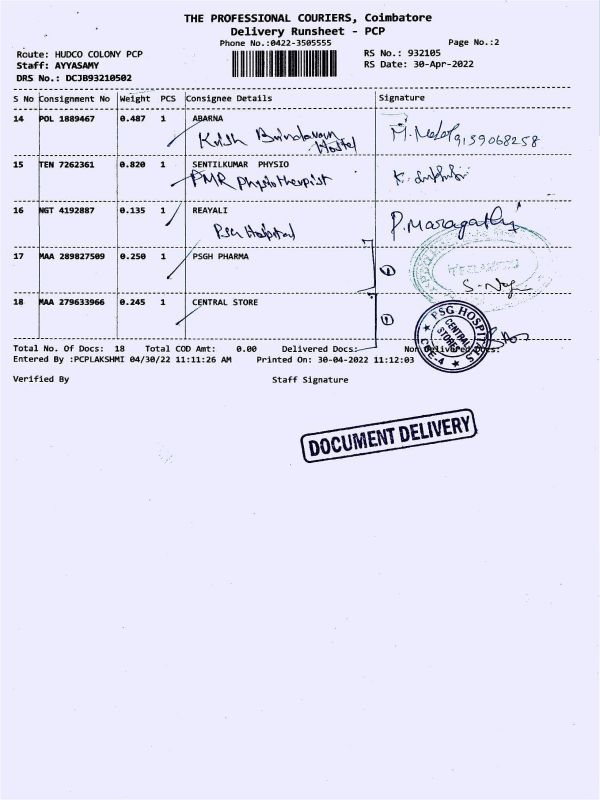 THE PROFESSIONAL COURIERS, Coimbatore
Delivery Runsheet - PCP
Phone No.:0422-3505555
Page No.:2
Route: HUDCO COLONY PCP
RS No.: 932105
Staff: AYYASAMY
RS Date: 30-Apr-2022
DRS No.: DCJB93210502
S No Consignment No Weight PCS Consignee Details Signature
14 POL 1889467 0.487 1 ABARNA
Hostel
9159068258
15 TEN 7262361 0.820 1 SENTILKUMAR PHYSIO
PMR Physiotherapist
16 NGT 4192887 0.135 1 REAYALI
PSG Hospital
P. Maragatha
17 MAA 289827509 0.250 1 PSGH PHARMA
1
18 MAA 279633966 0.245 1 CENTRAL STORE
1
PSG HOSPITALS
CENTRAL STORES
CBE-4
Total No. Of Docs: 18 Total COD Amt: 0.00 Delivered Docs: Non Delivered Docs:
Entered By :PCPLAKSHMI 04/30/22 11:11:26 AM Printed On: 30-04-2022 11:12:03
Verified By Staff Signature
DOCUMENT DELIVERY